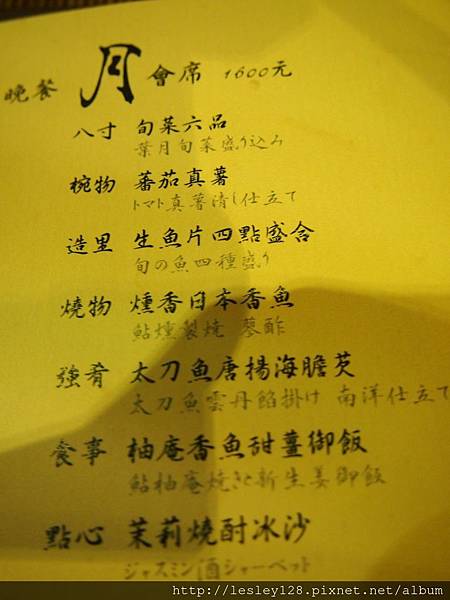 晚餐 月 會席 1600元
八寸 旬菜六品
葉月旬菜盛り込み
椀物 蕃茄真薯
トマト真薯清し仕立て
造里 生魚片四點盛合
旬の魚四種盛り
燒物 燻香日本香魚
鮎燻製焼 蓼酢
強肴 太刀魚唐揚海膽芡
太刀魚雲丹餡掛け 南洋仕立て
食事 柚庵香魚甜薑御飯
鮎柚庵焼きと新生姜御飯
點心 茉莉燒酎冰沙
ジャスミン酒シャーベット
http://lesley128.pixnet.net/album